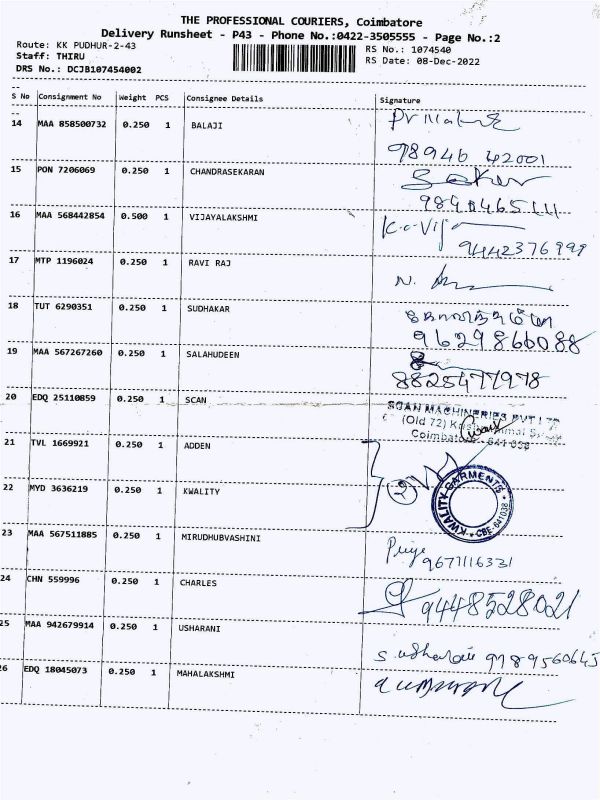 THE PROFESSIONAL COURIERS, Coimbatore
Delivery Runsheet - P43 - Phone No.:0422-3505555 - Page No.:2
Route: KK PUDHUR-2-43 RS No.: 1074540
Staff: THIRU RS Date: 08-Dec-2022
DRS No.: DCJB107454002
S No Consignment No Weight PCS Consignee Details Signature
14 MAA 858500732 0.250 1 BALAJI
98946 42001
15 PON 7206069 0.250 1 CHANDRASEKARAN
16 MAA 568442854 0.500 1 VIJAYALAKSHMI
9442376999
17 MTP 1196024 0.250 1 RAVI RAJ
18 TUT 6290351 0.250 1 SUDHAKAR
9629866088
19 MAA 567267260 0.250 1 SALAHUDEEN
8825477978
20 EDQ 25110859 0.250 1 SCAN SCAN MACHINERIES PVT LTD
(Old 72)
Coimbatore - 641 038
21 TVL 1669921 0.250 1 ADDEN
22 MYD 3636219 0.250 1 KWALITY 2 KWALITY GARMENTS * CBE-641038 *
23 MAA 567511885 0.250 1 MIRUDHUBVASHINI
Priya 9677116331
24 CHN 559996 0.250 1 CHARLES
9448528021
25 MAA 942679914 0.250 1 USHARANI
S. usharani 9789560645
26 EDQ 18045073 0.250 1 MAHALAKSHMI